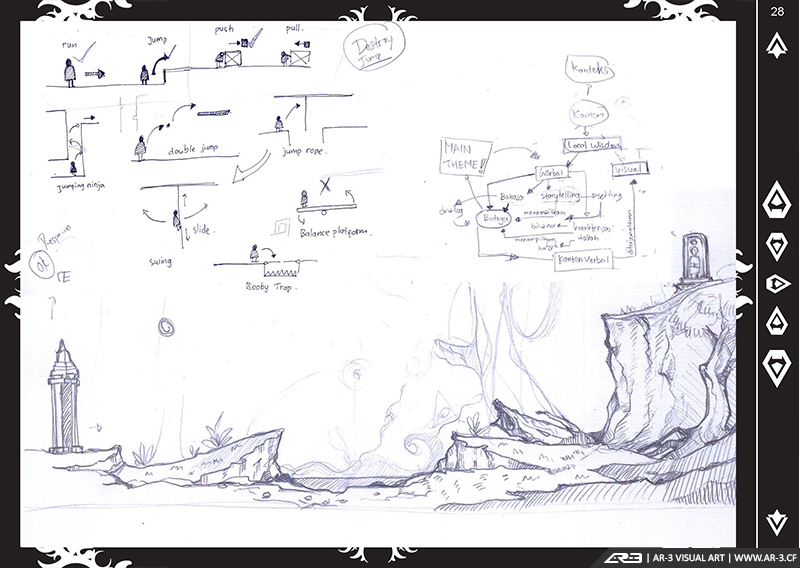 28
run
Jump
push
pull.
Destroy
Jump
Jumping ninja
double jump
jump rope.
slide.
swing
X
Balance platform.
Booby Trap.
Konteks
Konten
Local wisdom
MAIN
THEME!
Verbal
Visual
Bahasa
storytelling
dialog
Budaya
Konten Verbal
AR-3 | AR-3 VISUAL ART | WWW.AR-3.CF